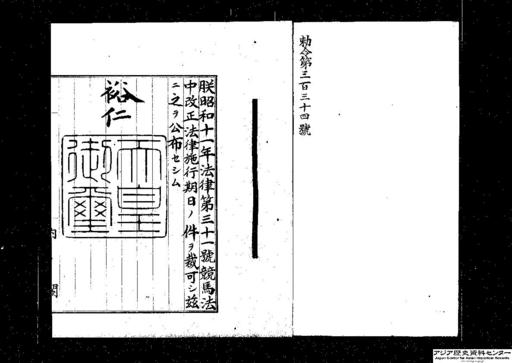 勅令第三百三十四號
朕昭和十一年法律第三十一號競馬法
中改正法律施行期日ノ件ヲ裁可シ茲
ニ之ヲ公布セシム
裕仁
天皇
御璽
内
閣
アジア歴史資料センター
Japan Center for Asian Historical Records